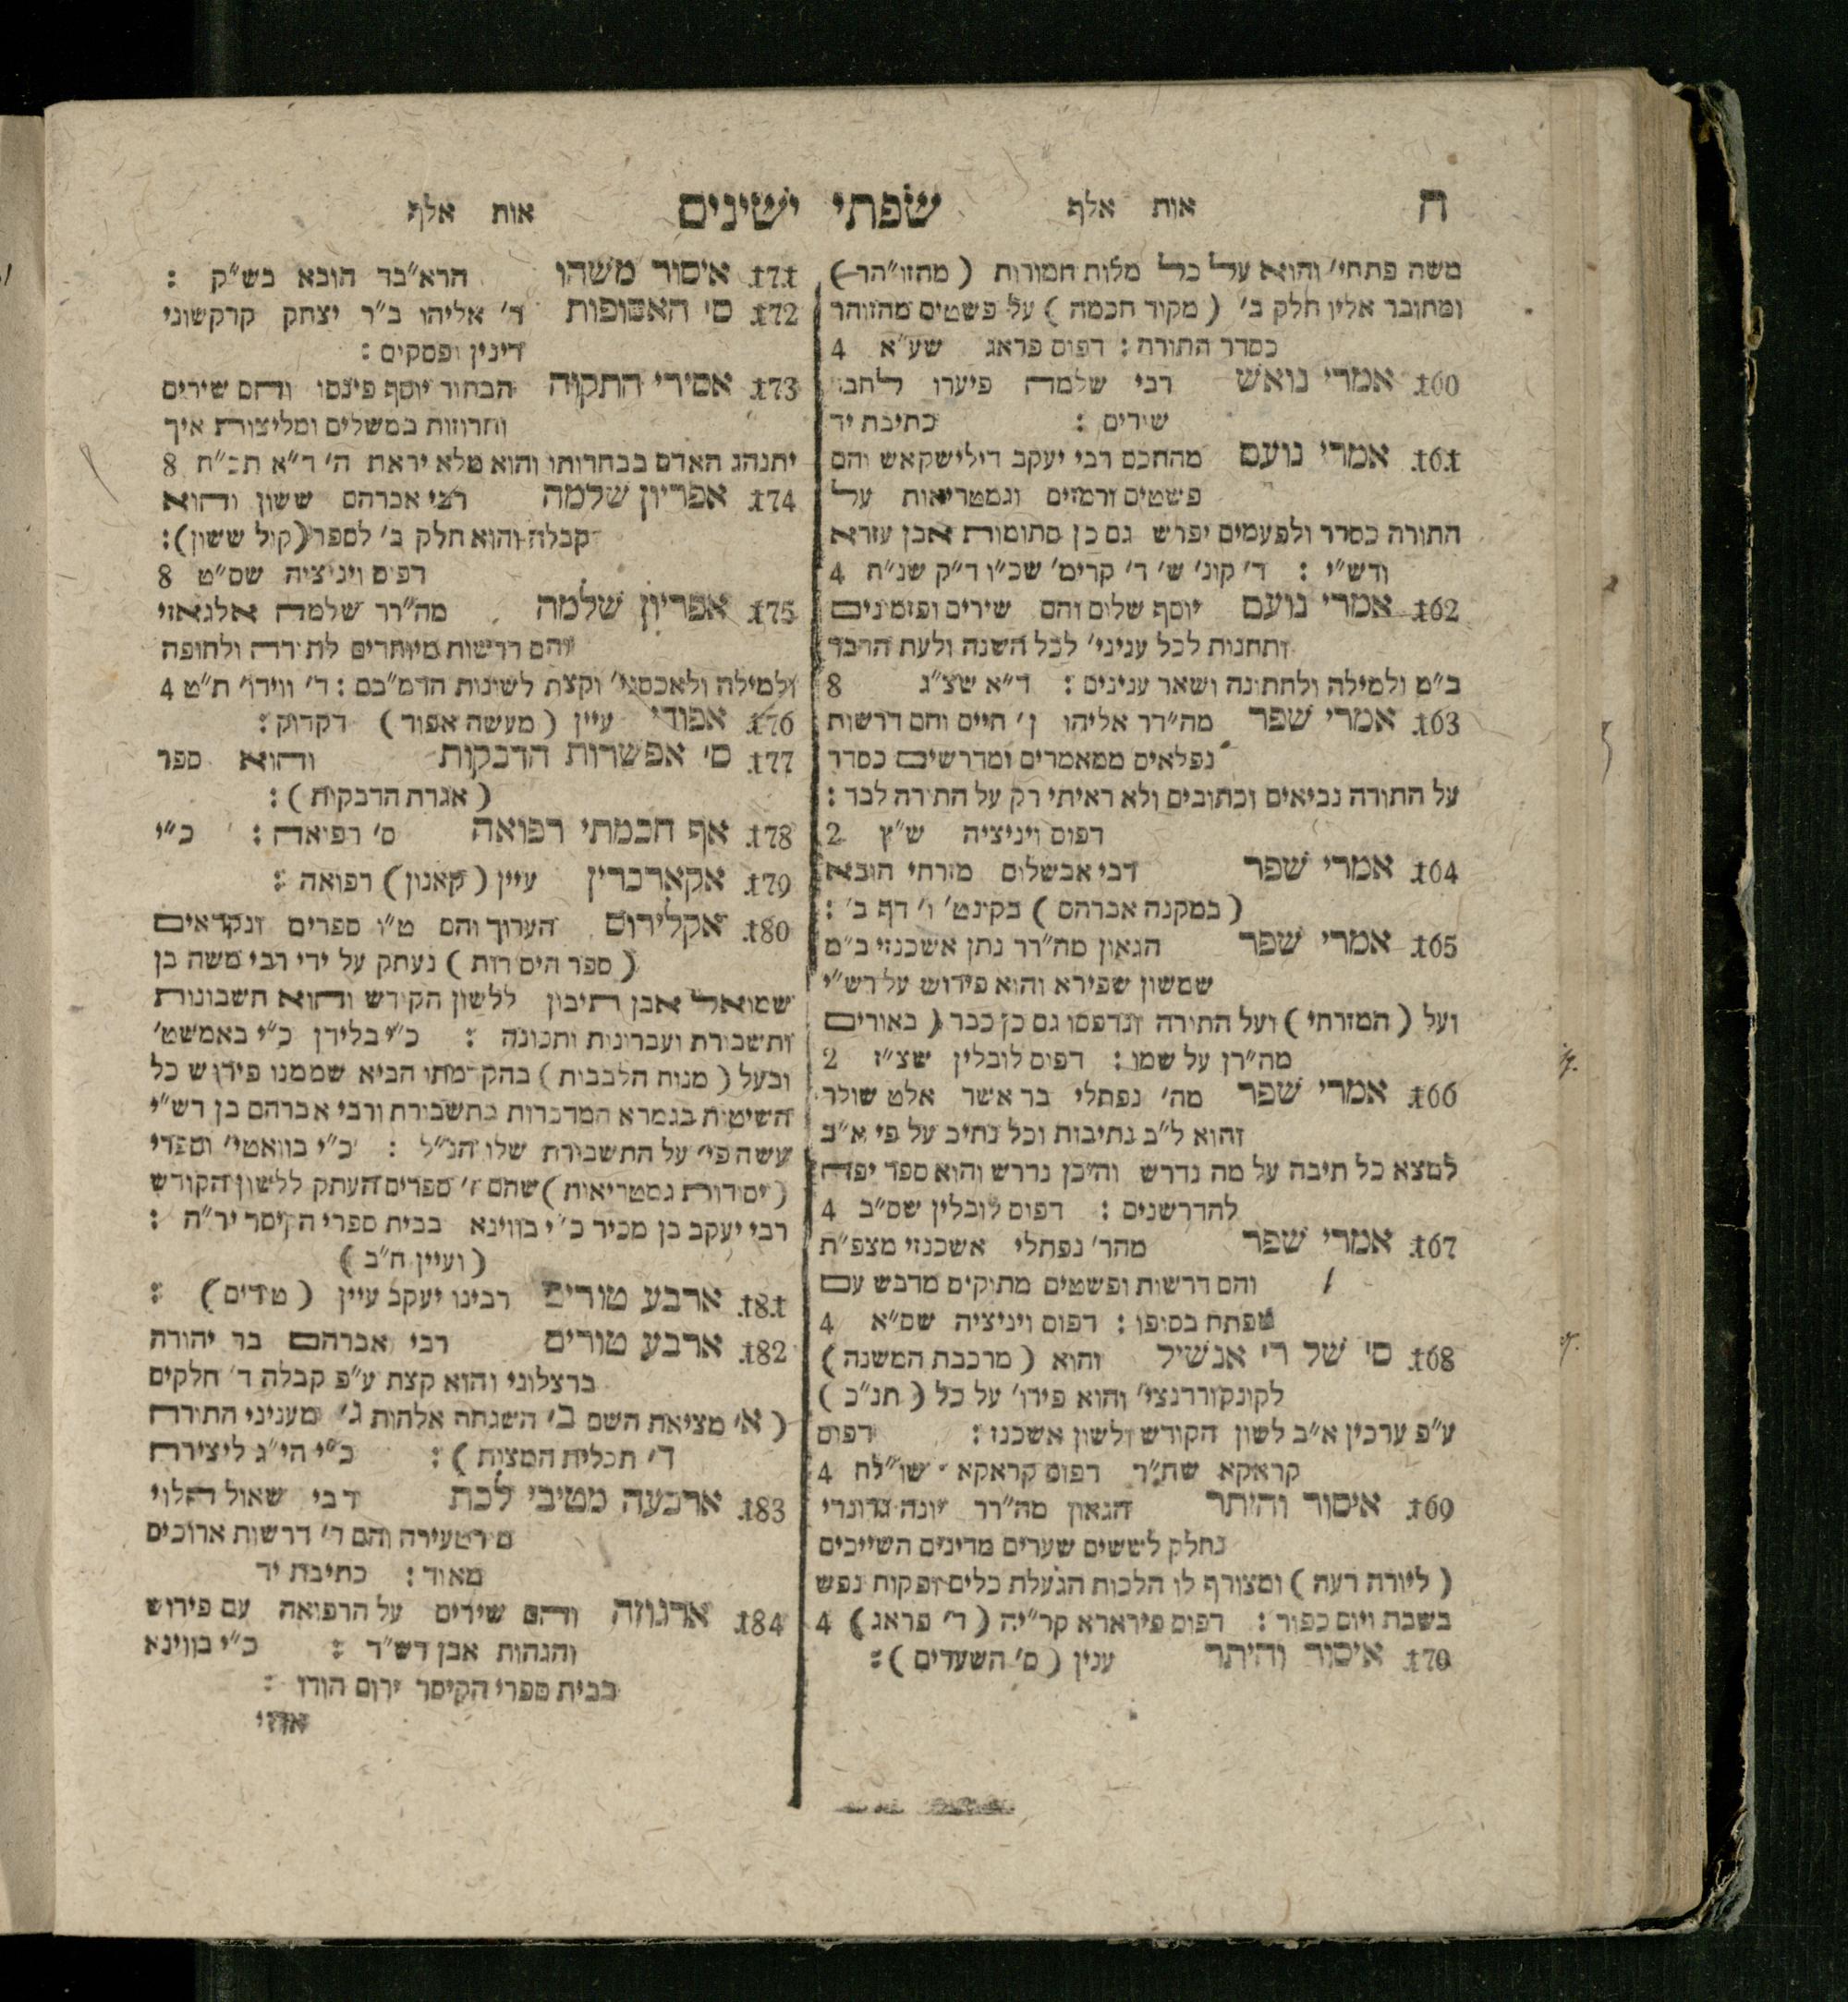 ח אות אלף שפתי ישינים אות אלף
משה פתחי׳ והוא על כל מלות חמורות (מהזו״הר)
ומחובר אליו חלק ב׳ (מקור חכמה) על פשטים מהזוהר
כסדר התורה: דפוס פראג שע״א 4
160. אמרי נואש רבי שלמה פיערו
שירים: כתיבת יד
161. אמרי נועם מהחכם רבי יעקב דילישקאש והם
פשטים ורמזים וגמטריאות על
התורה כסדר ולפעמים יפרש גם כן סתומות אבן עזרא
ורש״י: ד׳ קונ׳ ש׳ ד׳ קרימ׳ שכ״ו ד״ק שנ״ח 4
162. אמרי נועם יוסף שלום והם שירים ופזמונים
ותחנות לכל עניני׳ לכל השנה ולעת הדבר
ב״מ ולמילה ולחתונה ושאר ענינים: ד״א שצ״ג 8
163. אמרי שפר מה״רר אליהו ן׳ חיים והם דרשות
נפלאים ממאמרים ומדרשים כסדר
על התורה נביאים וכתובים ולא ראיתי רק על התורה לבד:
דפוס ויניציה ש״ץ 2
164. אמרי שפר רבי אבשלום מזרחי הובא
(במקנה אברהם) בקונט׳ ו׳ דף ב׳:
165. אמרי שפר הגאון מה״רר נתן אשכנזי ב״מ
שמשון שפירא והוא פירוש על רש״י
ועל (המזרחי) ועל התורה ונדפסו גם כן כבר (באורים
מה״רן על שמו: דפוס לובלין שצ״ז 2
166. אמרי שפר מה׳ נפתלי בר אשר אלט שולר
והוא ל״ב נתיבות וכל נתיב על פי א״ב
למצא כל תיבה על מה נדרש והיכן נדרש והוא ספר יפה
להדרשנים: דפוס לובלין שס״ב 4
167. אמרי שפר מהר׳ נפתלי אשכנזי מצפ״ת
והם דרשות ופשטים מתוקים מדבש עם
מפתח בסופו: דפוס ויניציה שס״א 4
168. ס׳ של ר׳ אנשיל והוא (מרכבת המשנה)
לקונקורדנצי׳ והוא פירו׳ על כל (תנ״כ)
ע״פ ערכין א״ב לשון הקודש ולשון אשכנז: דפוס
קראקא שח״ר דפוס קראקא שו״לח 4
169. איסור והיתר הגאון מה״רר יונה גרונדי
נחלק לששים שערים מדינים השייכים
(ליורה דעה) ומצורף לו הלכות הגעלת כלים ופקוח נפש
בשבת ויום כפור: דפוס פירארא קר״יה (ד׳ פראג) 4
170. איסור והיתר ענין (ס׳ השערים):
171. איסור משהו הרא״בד הובא בש״ק:
172. ס׳ האסופות ר׳ אליהו ב״ר יצחק קרקשוני
דינין ופסקים:
173. אסירי התקוה הבחור יוסף פינסו והם שירים
וחרוזות במשלים ומליצות איך
יתנהג האדם בבחרותו והוא מלא יראת ה׳ ד״א תכ״ח 8
174. אפריון שלמה רבי אברהם ששון והוא
קבלה והוא חלק ב׳ לספר (קול ששון):
דפוס ויניציה שס״ט 8
175. אפריון שלמה מה״רר שלמה אלגאזי
והם דרשות מיוחדים לתורה ולחופה
ולמילה ולאכסני׳ וקצת לשונות הרמ״בם: ד׳ ווירו׳ ת״ט 4
176. אפודי עיין (מעשה אפוד) דקדוק:
177. ס׳ אפשרות הדבקות והוא ספר
(אגרת הדבקות):
178. אף חכמתי רפואה ס׳ רפואה: כ״י
179. אקארברין עיין (קאנון) רפואה:
180. אקלידום הערוך והם ט״ו ספרים ונקראים
(ספר היסודות) נעתק על ידי רבי משה בן
שמואל אבן תיבון ללשון הקודש והוא חשבונות
ותשבורת ועברונות ותכונה: כ״י בלידן כ״י באמשט׳
ובעל (מנוח הלבבות) בהקדמתו הביא שממנו פירוש כל
השיטות בגמרא המדברות בתשבורת ורבי אברהם בן רש״י
עשה פי׳ על התשבורת שלו הנ״ל: כ״י בוואטי׳ וספרי
(יסודות גמטריאות) שהם ז׳ ספרים העתק ללשון הקודש
רבי יעקב בן מכיר כ״י בווינא בבית ספרי הקיסר יר״ה:
(ועיין ח״ב)
181. ארבע טורים רבינו יעקב עיין (טורים):
182. ארבע טורים רבי אברהם בר יהודה
ברצלוני והוא קצת ע״פ קבלה ד׳ חלקים
(א׳ מציאת השם ב׳ השגחה אלהות ג׳ מעניני התורה
ד׳ תכלית המצות): כ״י הי״ג ליצירה
183. ארבעה מטיבי לכת רבי שאול הלוי
מורטעירה והם ד׳ דרשות ארוכים
מאוד: כתיבת יד
184. ארגוזה והם שירים על הרפואה עם פירוש
והגהות אבן רש״ד: כ״י בווינא
בבית ספרי הקיסר ירום הודו: